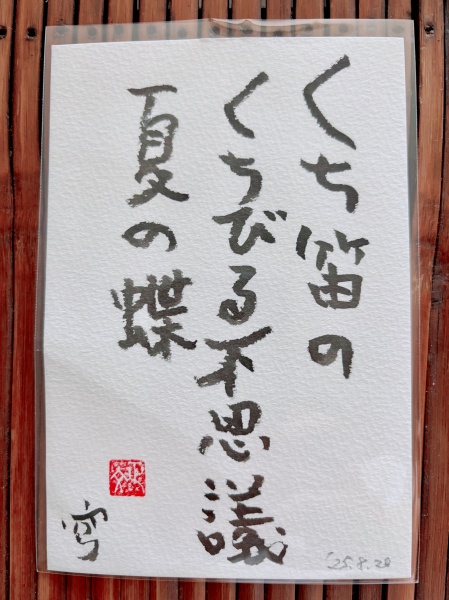 くち笛の
くちびる不思議
夏の蝶
'25.8.20